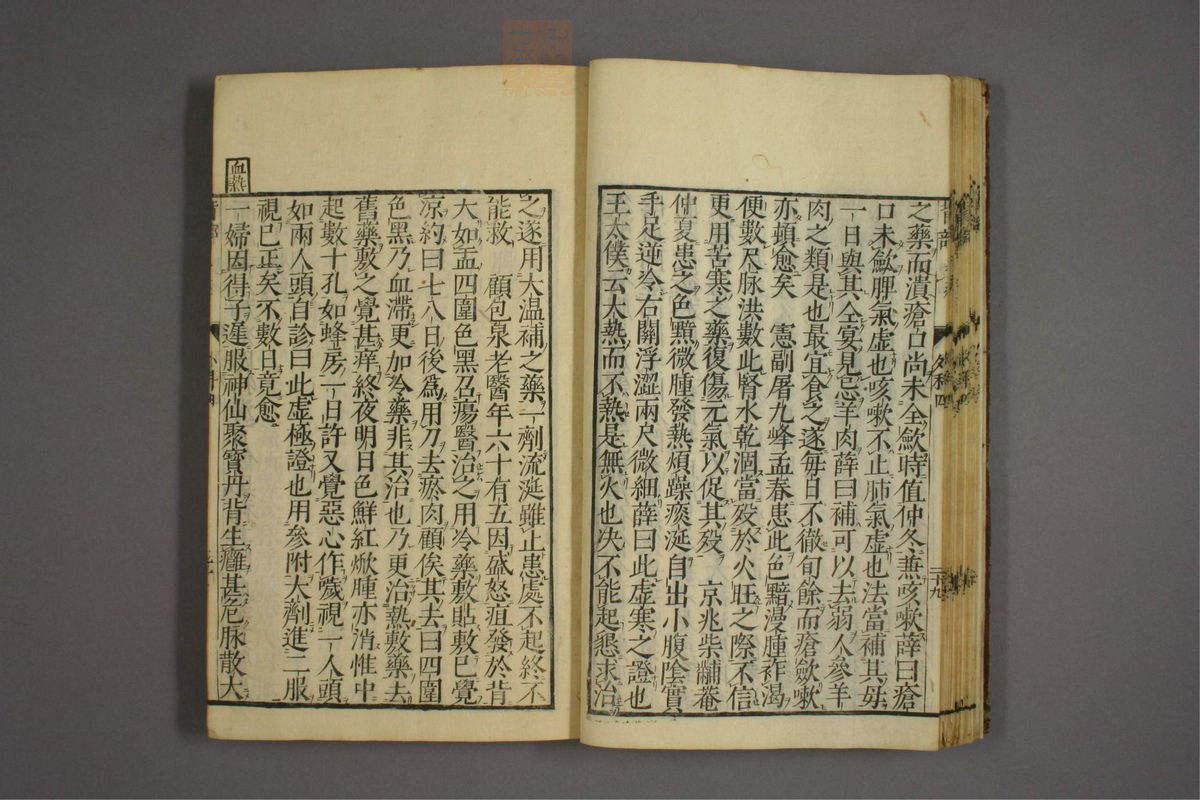 之藥而潰瘡口尚未全歛時值仲冬兼咳嗽薛曰瘡
口未歛脾氣虛也咳嗽不止肺氣虛也法當補其母
一日與其仝宴見忌羊肉薛曰補可以去弱人參羊
肉之類是也最宜食之遂每日不徹旬餘而瘡歛嗽
亦頓愈矣　憲副屠九峰孟春患此色黯漫腫作渴
便數尺脉洪數此腎水乾涸當歿於火旺之際不信
更用苦寒之藥復傷元氣以促其歿　京兆柴黼菴
仲夏患之色黯微腫發熱煩躁痰涎自出小腹陰實
手足逆冷右關浮澀兩尺微細薛曰此虛寒之證也
王太僕云大熱而不熱是無火也决不能起懇求治
之遂用大温補之藥一劑流涎雖止患處不起終不
能救　顧包泉老醫年六十有五因盛怒疽發於背
大如盂四圍色黑召瘍醫治之用冷藥敷貼敷已覺
凉約曰七八日後爲用刀去瘀肉顧俟其去曰四圍
色黑乃血滯更加冷藥非其治也乃更治熱敷藥去
舊藥敷之覺甚痒終夜明日色鮮紅焮腫亦消惟中
起數十孔如蜂房一日許又覺惡心作噦視一人頭
如兩人頭自診曰此虛極證也用參附大劑進二服
視已正矣不數日竟愈
血熱
一婦因得子遲服神仙聚寶丹背生癰甚危脉散大